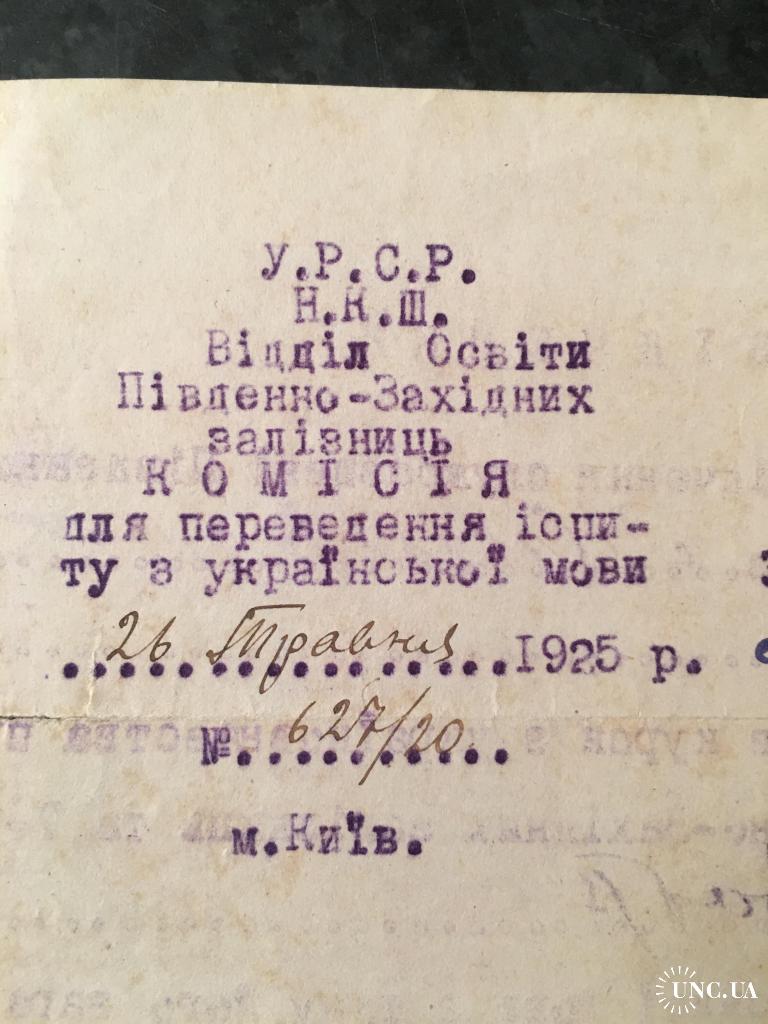 У.Р.С.Р.
Н.К.Ш.
Відділ Освіти
Південно-Західних
залізниць
КОМІСІЯ
для переведення іспи-
ту з української мови
26 Травня 1925 р.
№. 627/20
м.Київ.
UNC.UA